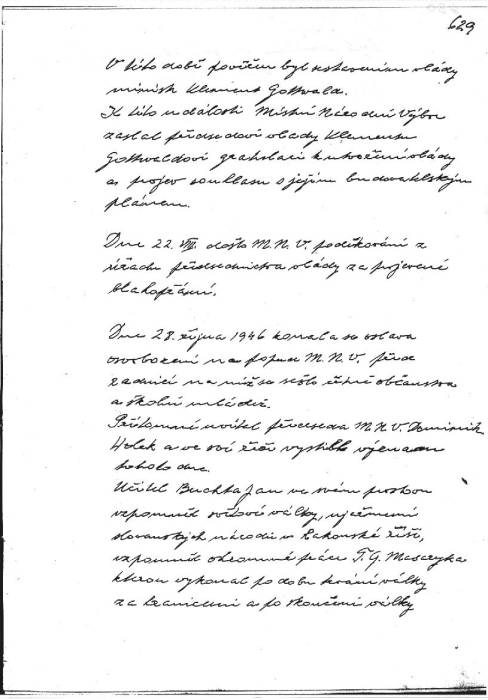 629
V této době pověřen byl sestavením vlády
ministr Klement Gottwald.
K této události Místní Národní Výbor
zaslal předsedovi vlády Klementu
Gottwaldovi gratulaci k utvoření vlády
a projev souhlasu s jejím budovatelským
plánem.
Dne 22. VII. došlo M.N.V. poděkování z
úřadu předsednictva vlády za projevené
blahopřání.
Dne 28. října 1946 konala se oslava
osvobození na popud M.N.V. před
radnicí na níž se sešlo občanstvo
a školní mládež.
Přítomné uvítal předseda M.N.V. Dominik
Holek a ve své řeči vystihl význam
tohoto dne.
Učitel Buchta Jan ve svém proslovu
vzpomněl světové války, ujařmení
slovanských národů v Rakouské říši,
vzpomněl ohromné práce T.G. Masaryka
kterou vykonal po dobu trvání války
za hranicemi a po skončení války